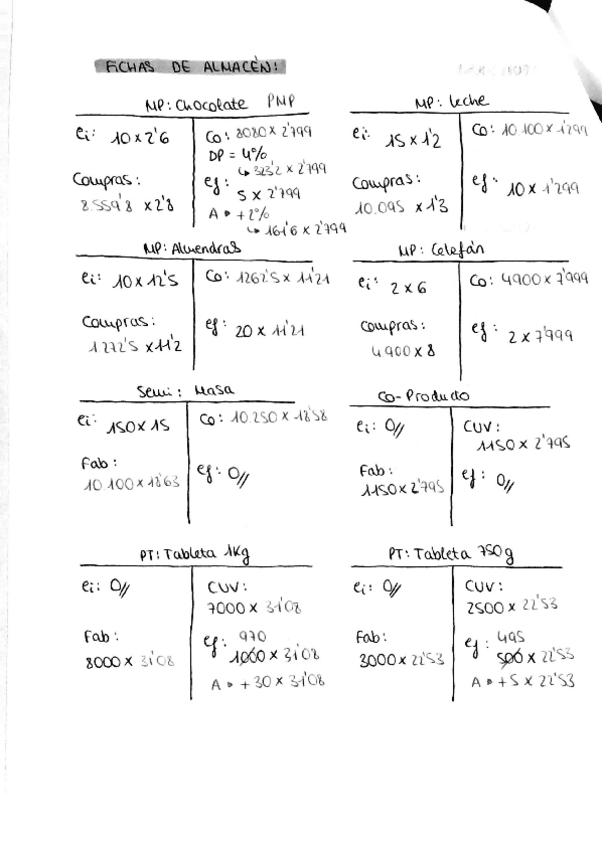 FICHAS DE ALMACÉN:
MP: Chocolate PMP
ei: 10 x 2'6
Co: 8080 x 2'799
DP = 4%
↳ 323'2 x 2'799
Compras:
8.559'8 x 2'8
ef:
5 x 2'799
A → +2%
↳ 161'6 x 2'799
MP: Leche
ei: 15 x 1'2
Co: 10.100 x 1'299
Compras:
10.095 x 1'3
ef: 10 x 1'299
MP: Almendras
ei: 10 x 12'5
Co: 1262'5 x 11'21
Compras:
1.272'5 x 11'2
ef: 20 x 11'21
MP: Celefán
ei: 2 x 6
Co: 4900 x 7'999
Compras:
4.900 x 8
ef: 2 x 7'999
Semi: Masa
ei: 150 x 15
Co: 10.250 x 18'58
Fab:
10.100 x 18'63
ef: 0//
Co-Producto
ei: 0//
CUV:
1150 x 2'795
Fab:
1150 x 2'795
ef: 0//
PT: Tableta 1Kg
ei: 0//
CUV:
7000 x 31'08
Fab:
8000 x 31'08
ef: 970
1000 x 31'08
A → +30 x 31'08
PT: Tableta 750g
ei: 0//
CUV:
2500 x 22'53
Fab:
3000 x 22'53
ef: 495
500 x 22'53
A → +5 x 22'53